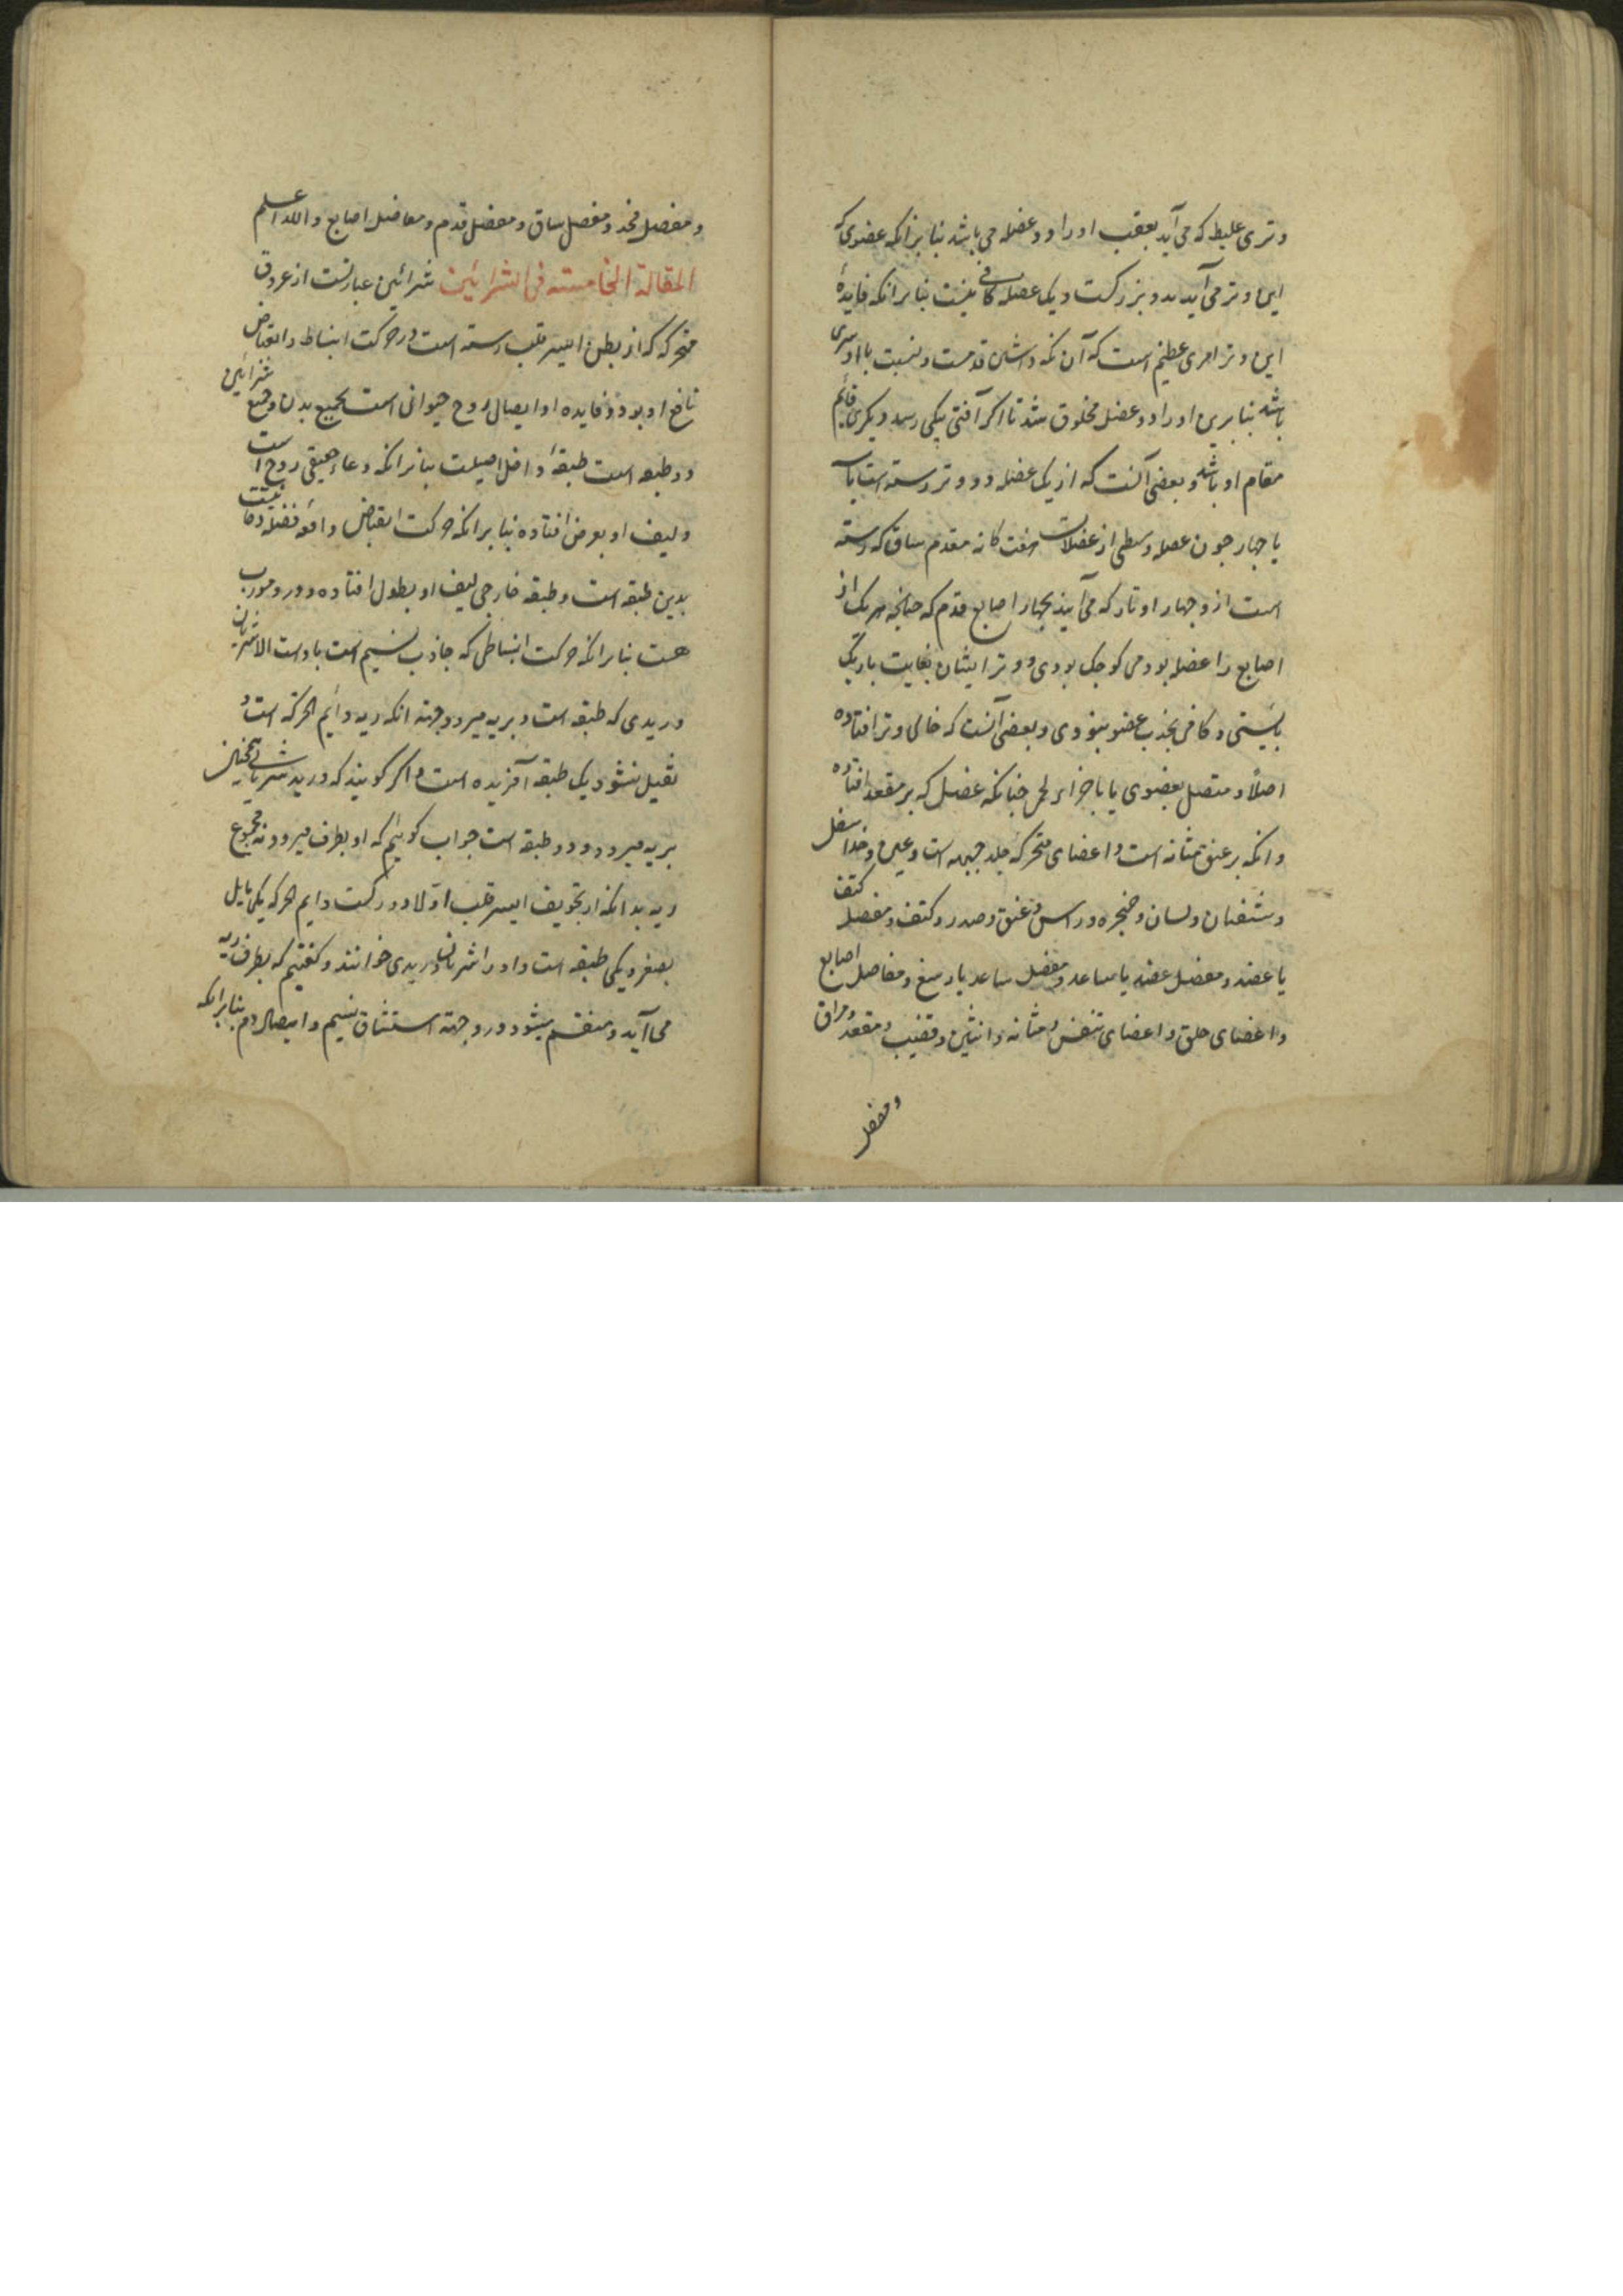 وتری غلیظ که می آید بعقب او را دو عضله می باشد بنا برانکه عضوی که
این وتر می آید بدو بزرکست و یک عضله کافی نیست بنا برانکه فایدهٔ
این وتر امری عظیم است که آن نکه داشتن قدمست و نسبت با او سری
باشد بنا برین او را دو عضل مخلوق شد تا اکر آفتی بیکی رسد دیکری قایم
مقام او باشد و بعضی آنست که از یک عضله دو وتر رسته است یا سه
یا جهار جون عضله وسطی از عضلات هفت کانه مقدم ساق که رسته
است ازو جهار اوتار که می آیند بجهار اصابع قدم که جنانجه هر یک از
اصابع را عضله بودمی کوجک بودی و وتر ایشان بغایت باریک
بایستی و کافی بجذب عضو نبودی و بعضی آنست که خالی وتر افتاده
اصلا و متصل بعضوی یا باجزاء لحمی جنانکه عضل که بر مقعد افتاده
وانکه بر عنق مثانه است و اعضای متحرکه جلد جبهه است و عین و خد اسفل
و شفتان و لسان و حنجره و راس و عنق و صدر و کتف و مفصل کتف
با عضد و مفصل عضد با ساعد و مفصل ساعد با رسغ و مفاصل اصابع
و اعضای حلق و اعضای تنفس و مثانه و انثیین و قضیب و مقعد و مراق
و مفصل
و مفصل فخذ و مفصل ساق و مفصل قدم و مفاصل اصابع والله اعلم
المقالة الخامسته فی الشرائین شرائین عبارتست از عروق
متحرکه که از بطن ایسر قلب رسته است و در حرکت انبساط و انقباض
تابع او بود و فایده او ایصال روح حیوانی است بجمیع بدن و جمیع شرائین
دو طبقه است طبقهٔ داخل اصیلست بنا برانکه وعاء حقیقی روح است
و لیف او بعرض افتاده بنا برانکه حرکت انقباض دافع فضله دخانیست
بدین طبقه است و طبقه خارجی لیف او بطول افتاده و درو مورب
هست بنا برانکه حرکت انبساطی که جاذب نسیم است باوست الا شریان
وریدی که طبقه است و بریه میرود و جهته انکه ریه دائم الحرکه است و
ثقیل نشود یک طبقه آفریده است و اکر کویند که ورید شریانی همجنان
بریه میرود و دو طبقه است جواب کوئیم که او بطرف میرود نه مجموع
ریه بدانکه از تجویف ایسر قلب اولا دو رکست دایم الحرکه یکی مایل
بصغر و یکی طبقه است و او را شریان وریدی خوانند و کفتیم که بطرف ریه
می آید و منقسم میشود درو جهته استنشاق نسیم و ایصال دم بنا برانکه